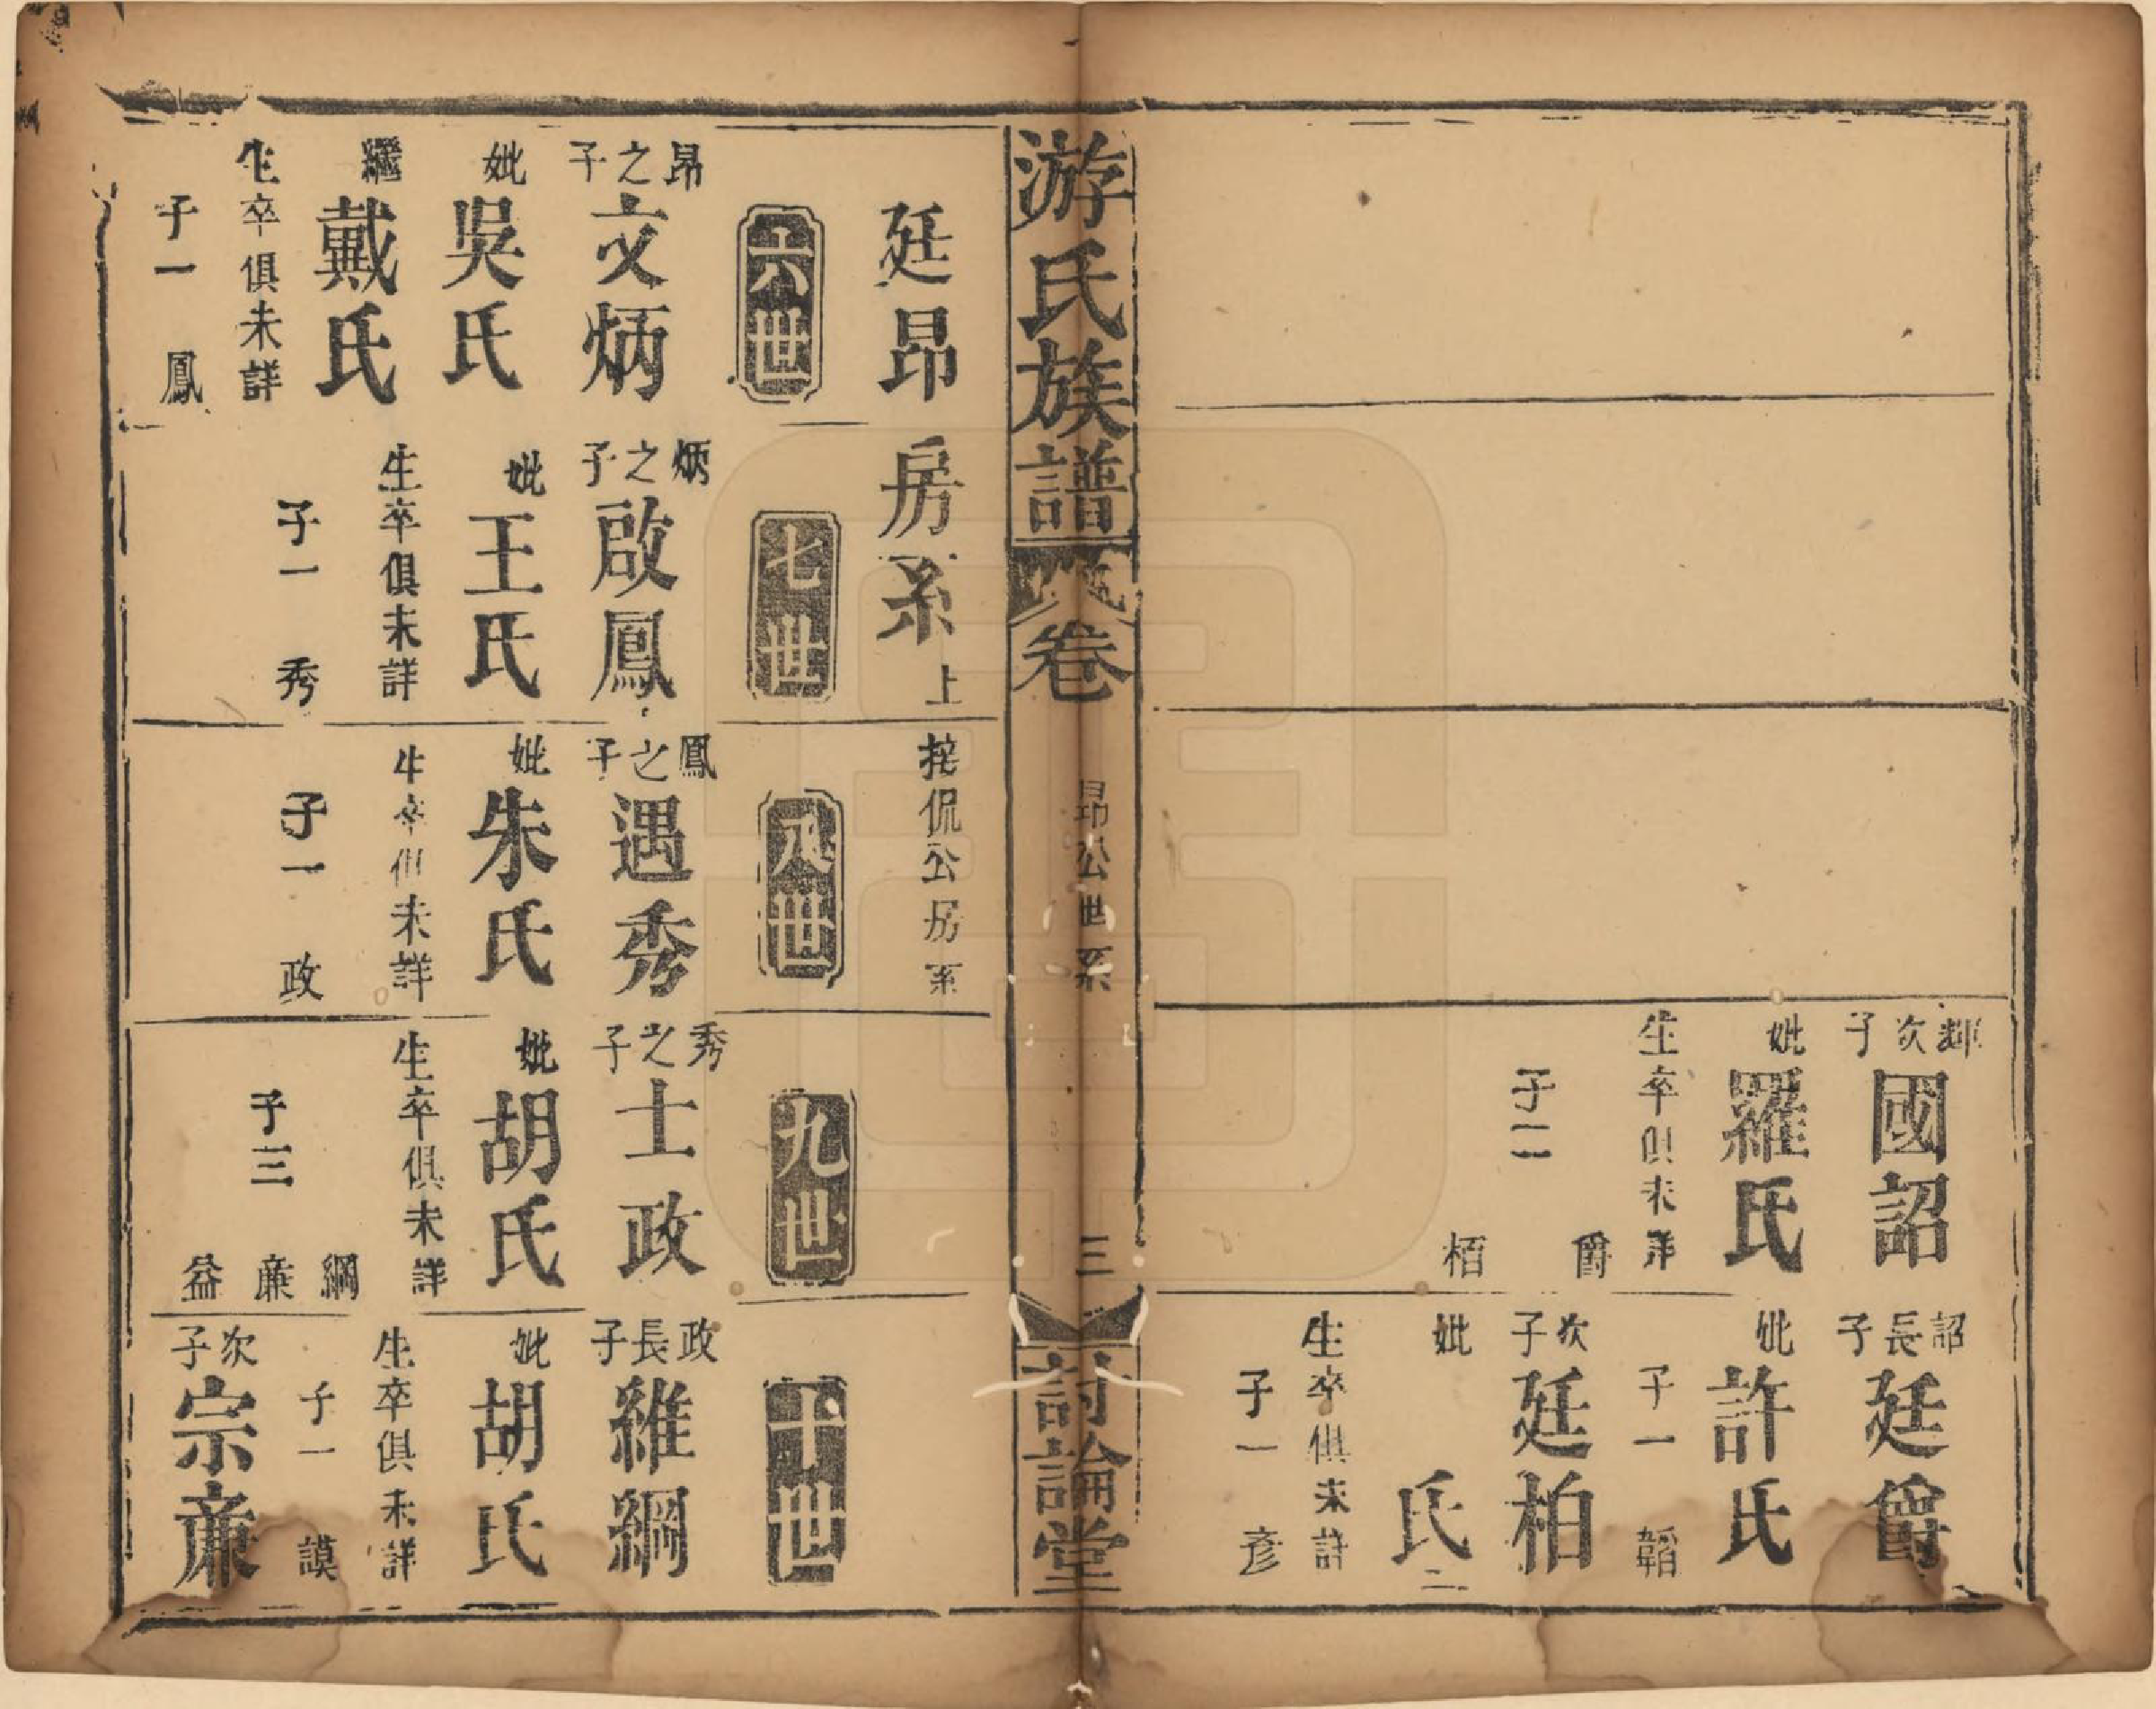 輝次子
國詔
妣
羅氏
生卒俱未詳
子二
爵
栢
詔長子
廷爵
妣
許氏
子一
韜
次子
廷柏
妣
氏二
生卒俱未詳
子一
彥
游氏族譜
卷
昂公世系
三
討論堂
廷昂房系上
侃公房系
六世
昂之子
文炳
妣
吳氏
繼
戴氏
生卒俱未詳
子一
鳳
七世
炳之子
啟鳳
妣
王氏
生卒俱未詳
子一
秀
八世
鳳之子
遇秀
妣
朱氏
生卒俱未詳
子一
政
九世
秀之子
士政
妣
胡氏
生卒俱未詳
子三
綱
亷
益
十世
政長子
維綱
妣
胡氏
生卒俱未詳
子一
謨
次子
宗亷